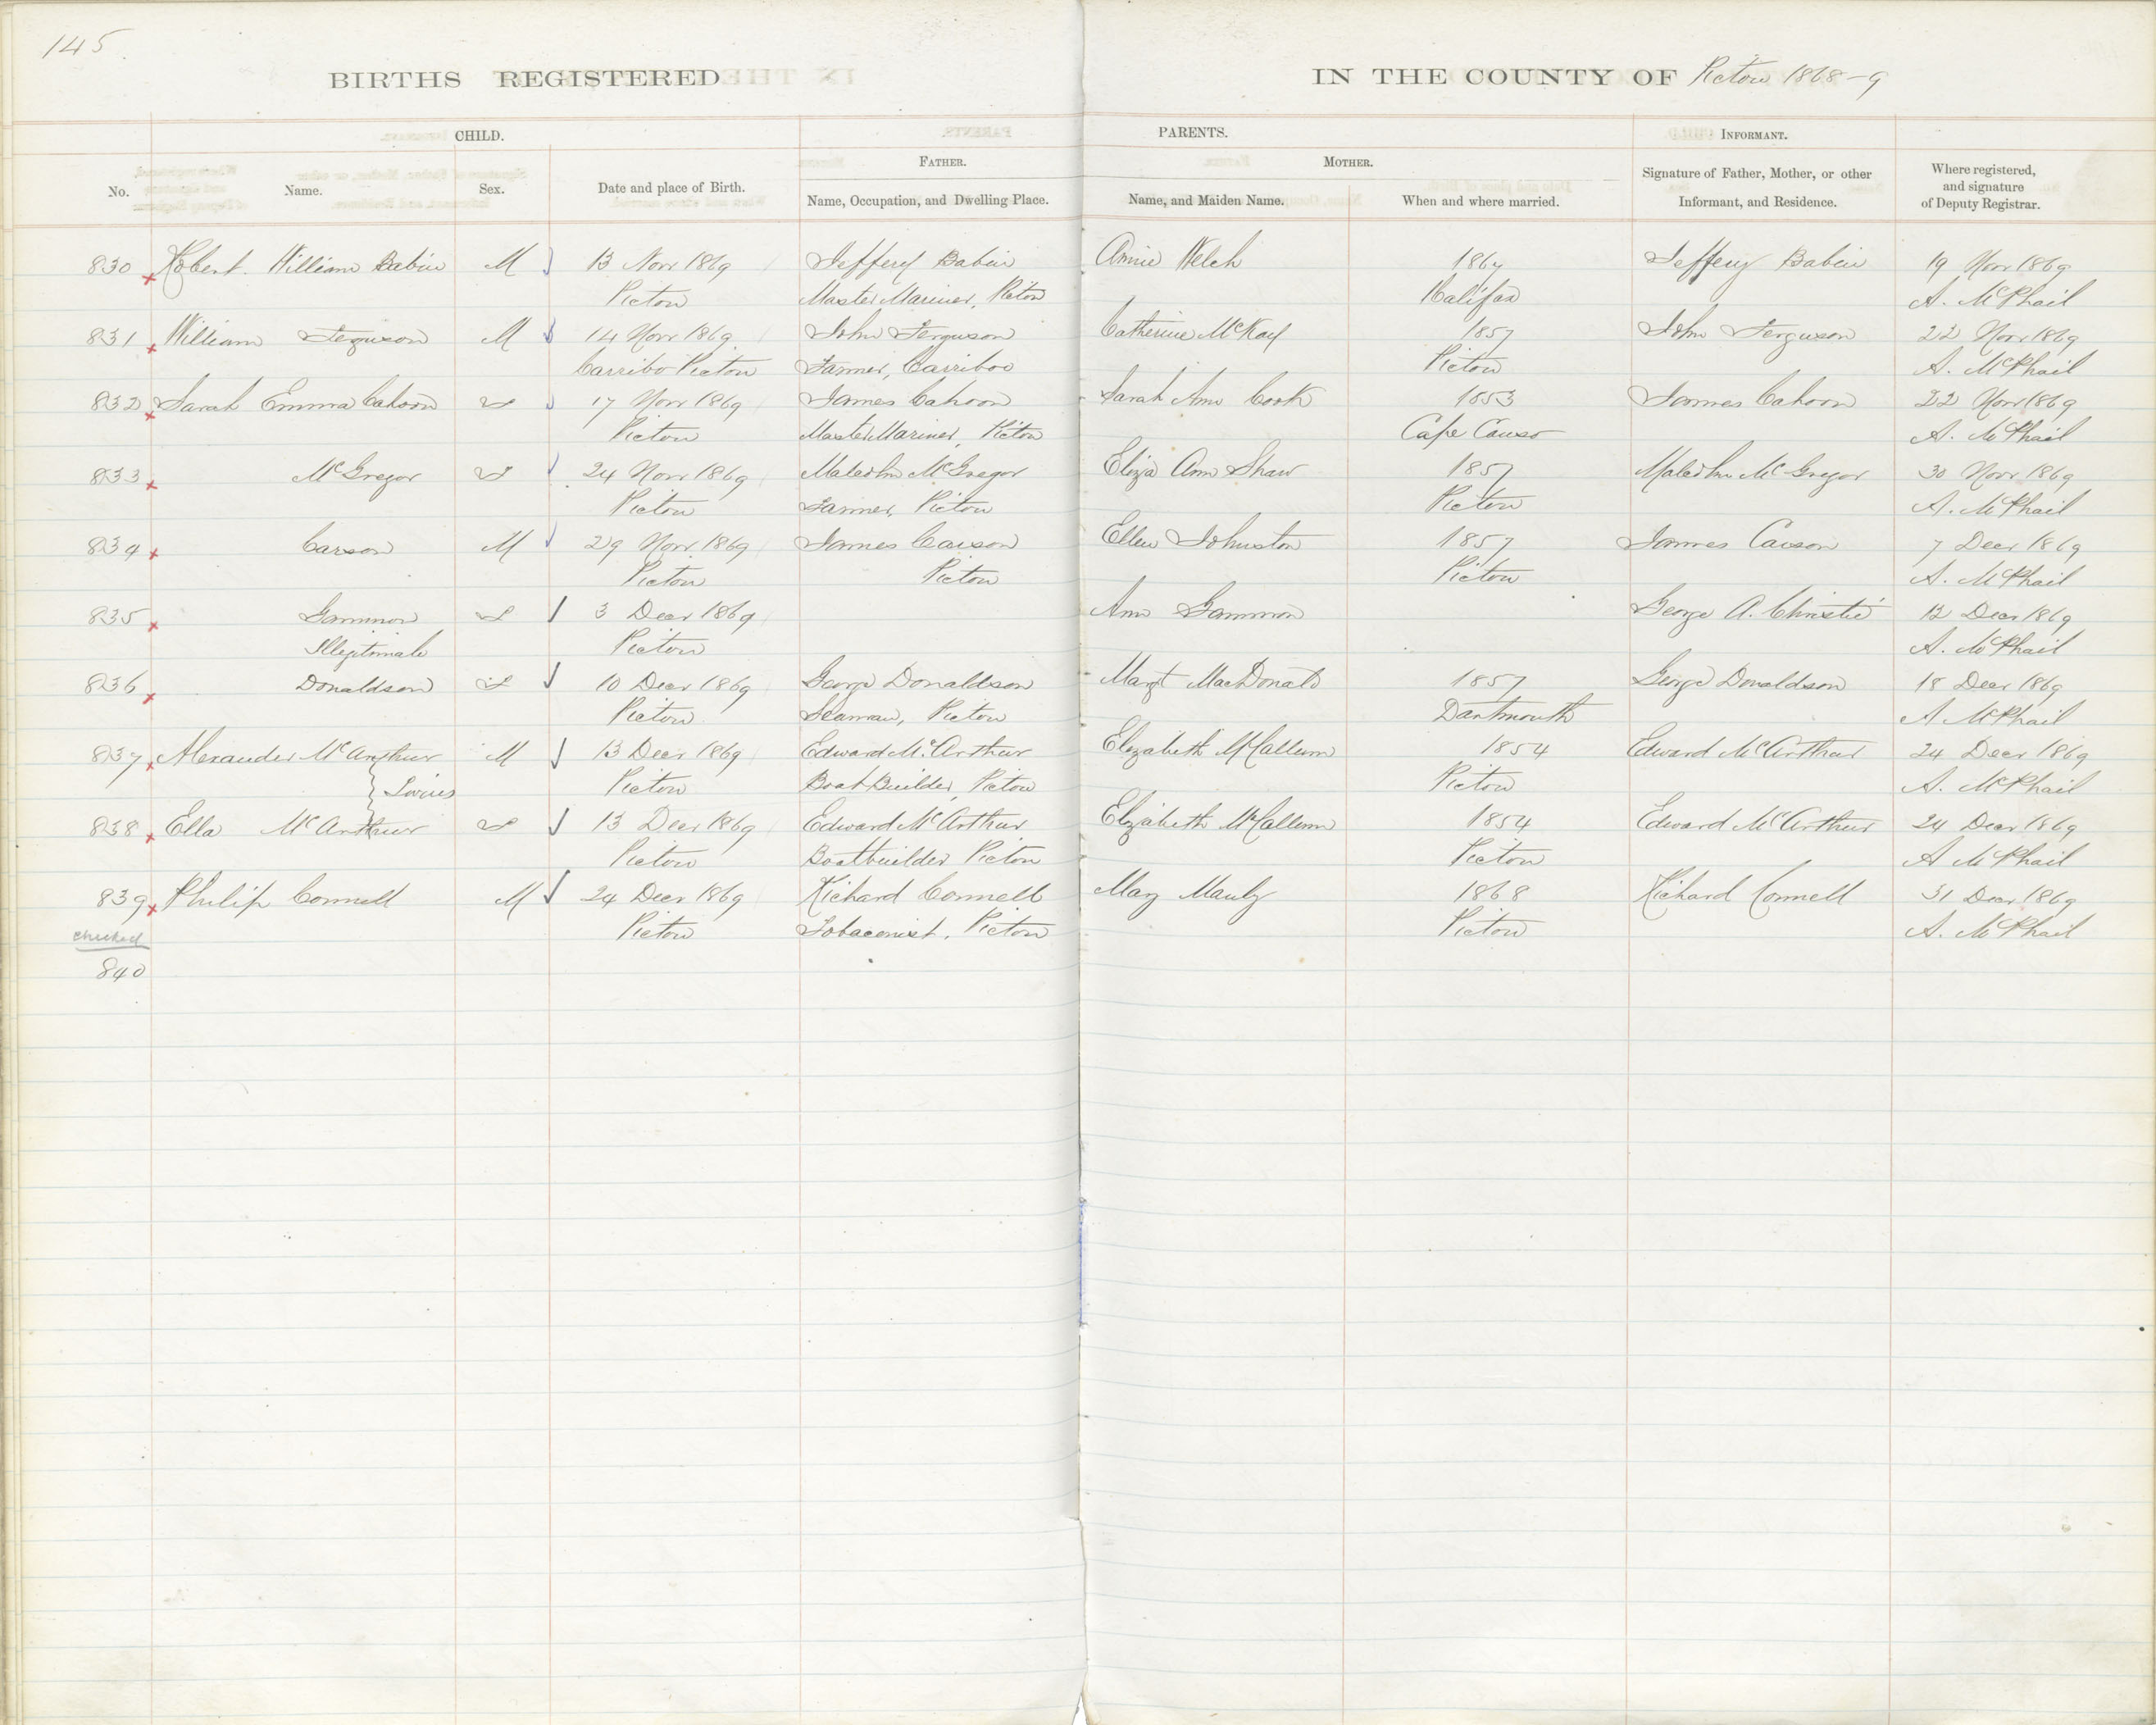 145
BIRTHS REGISTERED IN THE COUNTY OF Picton 1868-9
CHILD. PARENTS. INFORMANT.
FATHER. MOTHER.
No. Name. Sex. Date and place of Birth. Name, Occupation, and Dwelling Place. Name, and Maiden Name. When and where married. Signature of Father, Mother, or other Informant, and Residence. Where registered, and signature of Deputy Registrar.
830 Robert William Babin M 13 Novr 1869 Jeffery Babin Annie Welch Jeffery Babin 19 Novr 1869
Picton Master Mariner, Picton Halifax A. McPhail
831 William Ferguson M 14 Novr 1869 John Ferguson Catherine McKay 1857 John Ferguson 22 Novr 1869
Carribo Picton Farmer, Carriboo Picton A. McPhail
832 Sarah Emma Cahoon F 17 Novr 1869 James Cahoon Sarah Ann Cook 1853 James Cahoon 22 Novr 1869
Picton Master Mariner, Picton Cape Canso A. McPhail
833 McGregor F 24 Novr 1869 Malcolm McGregor Eliza Ann Shaw 1857 Malcolm McGregor 30 Novr 1869
Picton Farmer, Picton Picton A. McPhail
834 Carson M 29 Novr 1869 James Carson Ellen Johnston 1857 James Carson 7 Decr 1869
Picton Picton Picton A. McPhail
835 Gammon F 3 Decr 1869 Ann Gammon George A. Christie 12 Decr 1869
Illegitimate Picton A. McPhail
836 Donaldson F 10 Decr 1869 George Donaldson Margt MacDonald 1857 George Donaldson 18 Decr 1869
Picton Seaman, Picton Dartmouth A McPhail
837 Alexander McArthur M 13 Decr 1869 Edward McArthur Elizabeth McCallum 1854 Edward McArthur 24 Decr 1869
Twins Picton Boat Builder, Picton Picton A. McPhail
838 Ella McArthur F 13 Decr 1869 Edward McArthur Elizabeth McCallum 1854 Edward McArthur 24 Decr 1869
Picton Boatbuilder Picton Picton A McPhail
839 Philip Connell M 24 Decr 1869 Richard Connell Mary 1868 Richard Connell 31 Decr 1869
checked Picton Tobaconist, Picton Picton A. McPhail
840